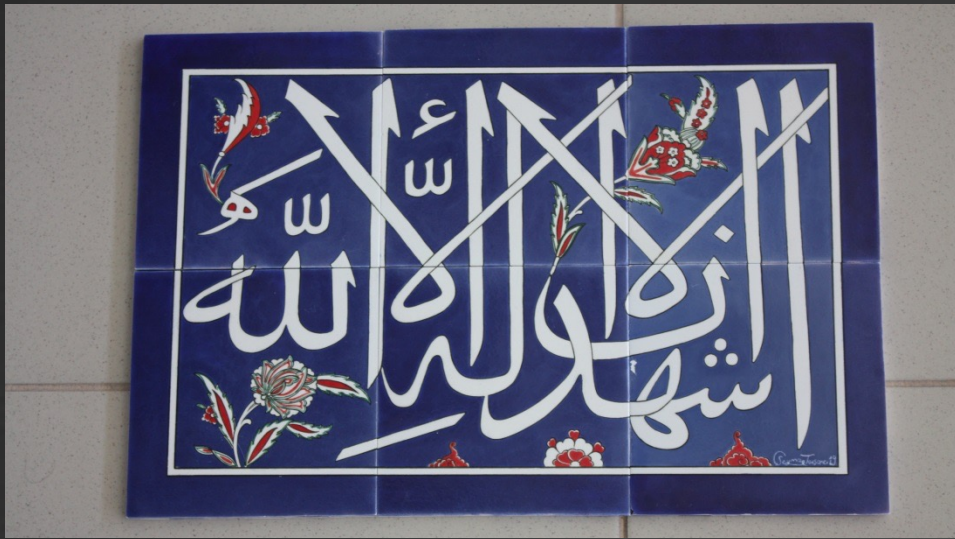 اشهد ان لا اله الا الله